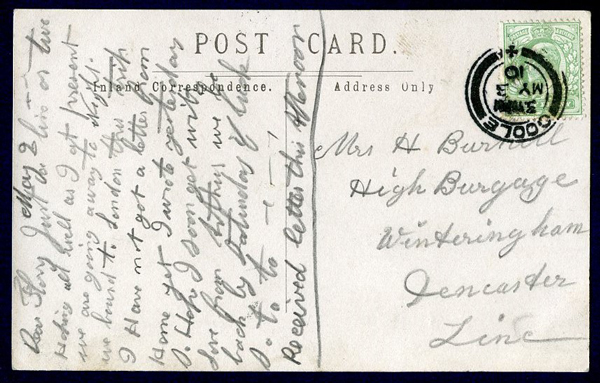 POST CARD.
Inland Correspondence.
Address Only
GOOLE
3
MY 3
10
Mrs H Burkill
High Burgage
Winteringham
Doncaster
Linc
May 2
Dear Flory Just a line or two
Hoping all well as I at present
we are going away to night.
we bound to London this trip
I Have not got a letter from
Home yet I wrote yesterday
So Hope I soon get
love from Arthur we be
back by Saturday if luck
Received letter this afternoon